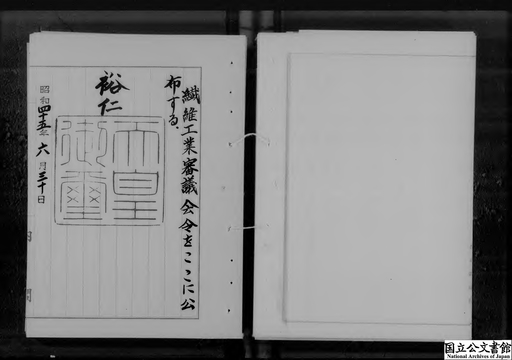 繊維工業審議会令をここに公
布する。
裕仁
天皇
御璽
昭和四十五年六月三十日
国立公文書館
National Archives of Japan